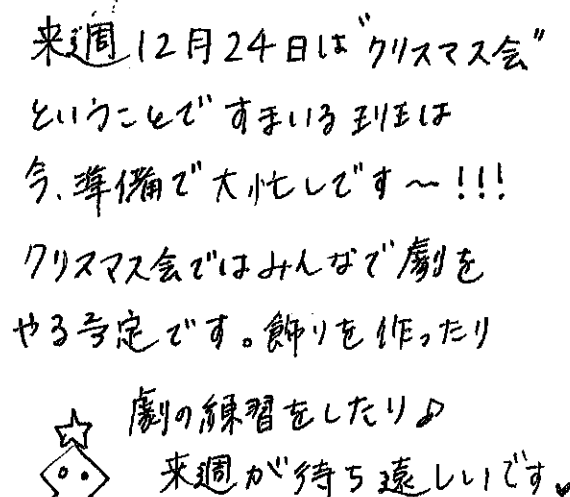 来週12月24日は"クリスマス会"
ということですまいる班は
今、準備で大忙しです～!!!
クリスマス会ではみんなで劇を
やる予定です。飾りを作ったり
劇の練習をしたり♪
来週が待ち遠しいです♥